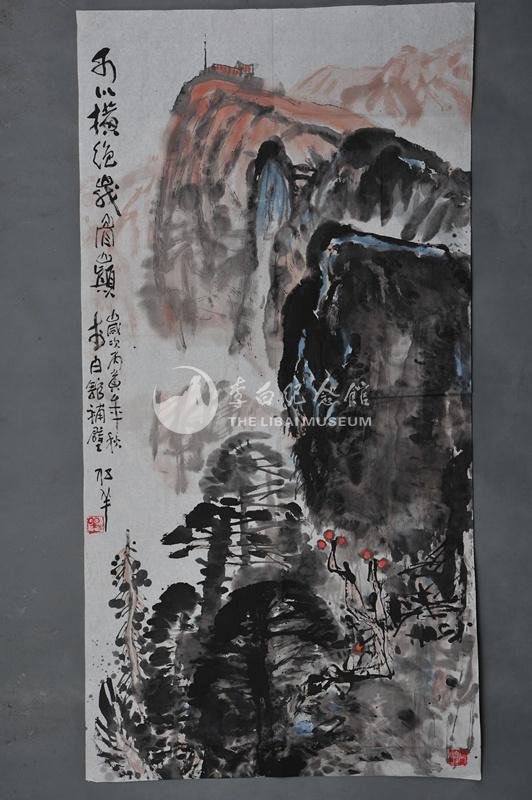 可以横绝峨眉巅
岁次丙寅年秋
李白馆补壁
李白纪念馆
THE LIBAI MUSEUM